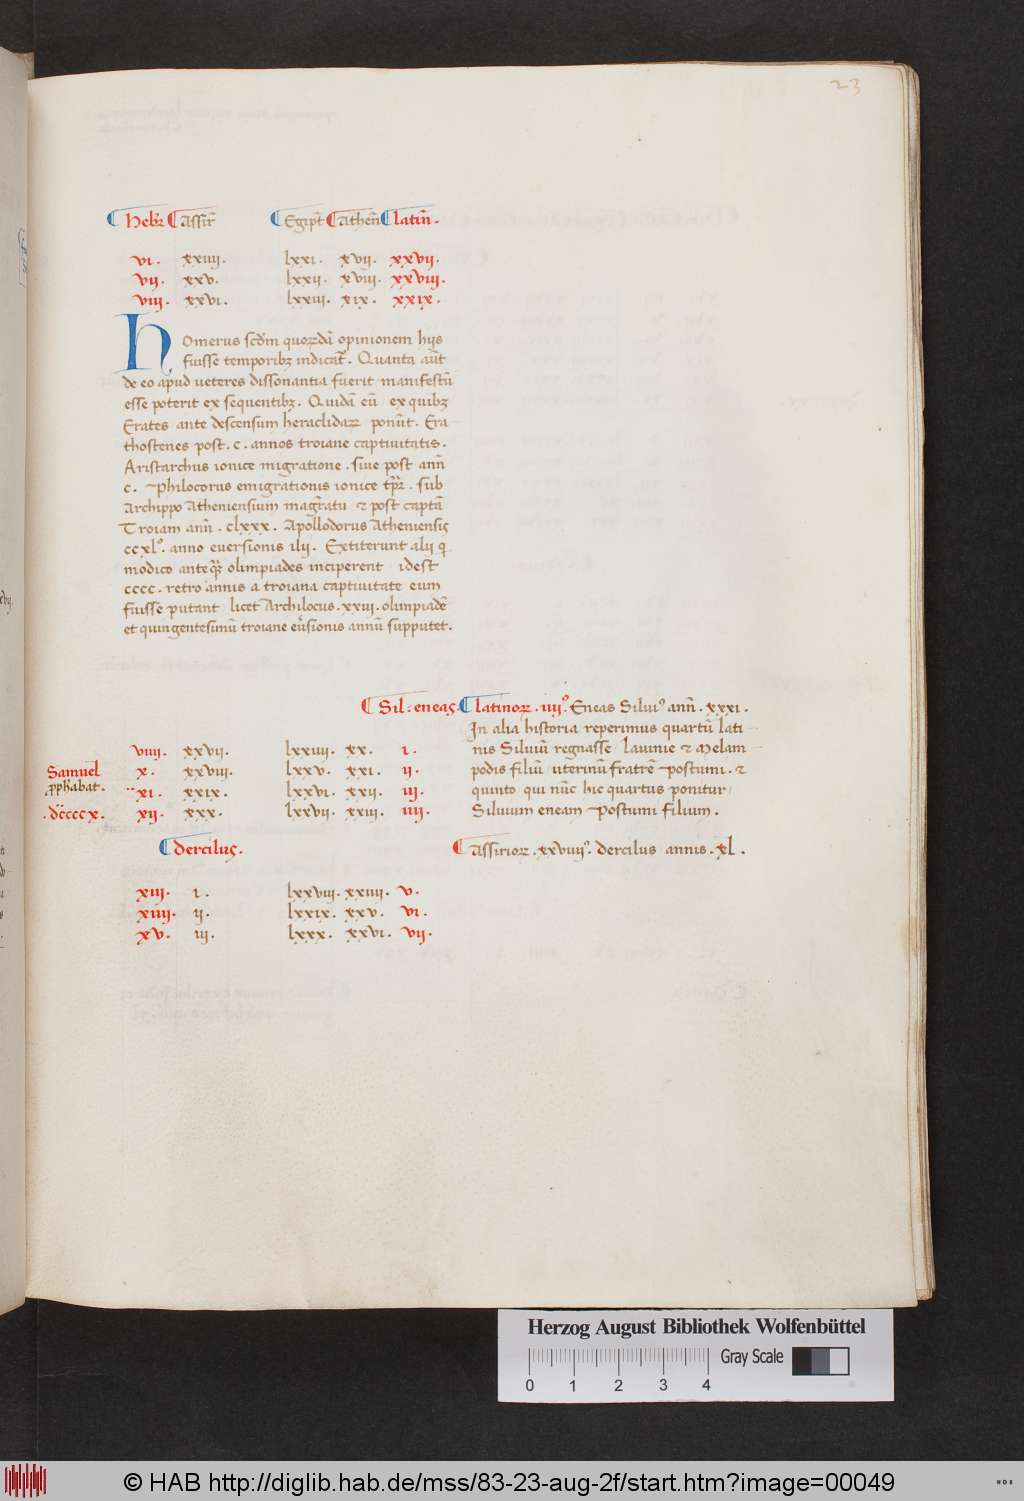 23
Hebr̄ Assir̄ Egipt̄ Athen̄ latin̄.
vi. xxiiii. lxxi. xvii. xxvii.
vii. xxv. lxxii. xviii. xxviii.
viii. xxvi. lxxiii. xix. xxix.
Homerus scd̄m quorꝫdā opinionem hijs
fuisse temporibꝫ indicat̄. Quanta aūt
de eo apud ueteres dissonantia fuerit manifestū
esse poterit ex sequentibꝫ. Quidā eū ex quibꝫ
Erates ante descensum heraclidaꝝ ponūt. Era
thostenes post. c. annos troiane captiuitatis.
Aristarchus ionice migratione. siue post ann̄
c. Philocorus emigrationis ionice tp̄r̄. sub
Archippo Atheniensium magr̄atu & post captā
Troiam ann̄. clxxx. Apollodorus Atheniensis
ccxlº. anno euersionis ilii. Extiterunt alij q
modico anteqꝫ olimpiades inciperent idest
cccc. retro annis a troiana captiuitate eum
fuisse putant licet Archilocus. xxiii. olimpiadē
et quingentesimū troiane eu̇sionis annū supputet.
Sil: eneas. latinoꝝ. iiiiº. Eneas Siluiꝰ ann̄. xxxi.
In alia historia reperimus quartū lati
viiii. xxvii. lxxiiii. xx. i. nis Siluiū regnasse lauinie & Melam
Samuel x. xxviii. lxxv. xxi. ii. podis filiū uterinū fratrē Postumi. &
pp̄habat. xi. xxix. lxxvi. xxii. iii. quinto qui nūc hic quartus ponitur
.dccccx. xii. xxx. lxxvii. xxiii. iiii. Siluium eneam Postumi filium.
dercilus. Assirioꝝ. xxviiiiº. dercilus annis. xl.
xiii. i. lxxviii. xxiiii. v.
xiiii. ii. lxxix. xxv. vi.
xv. iii. lxxx. xxvi. vii.
Herzog August Bibliothek Wolfenbüttel
Gray Scale
0 1 2 3 4
© HAB http://diglib.hab.de/mss/83-23-aug-2f/start.htm?image=00049